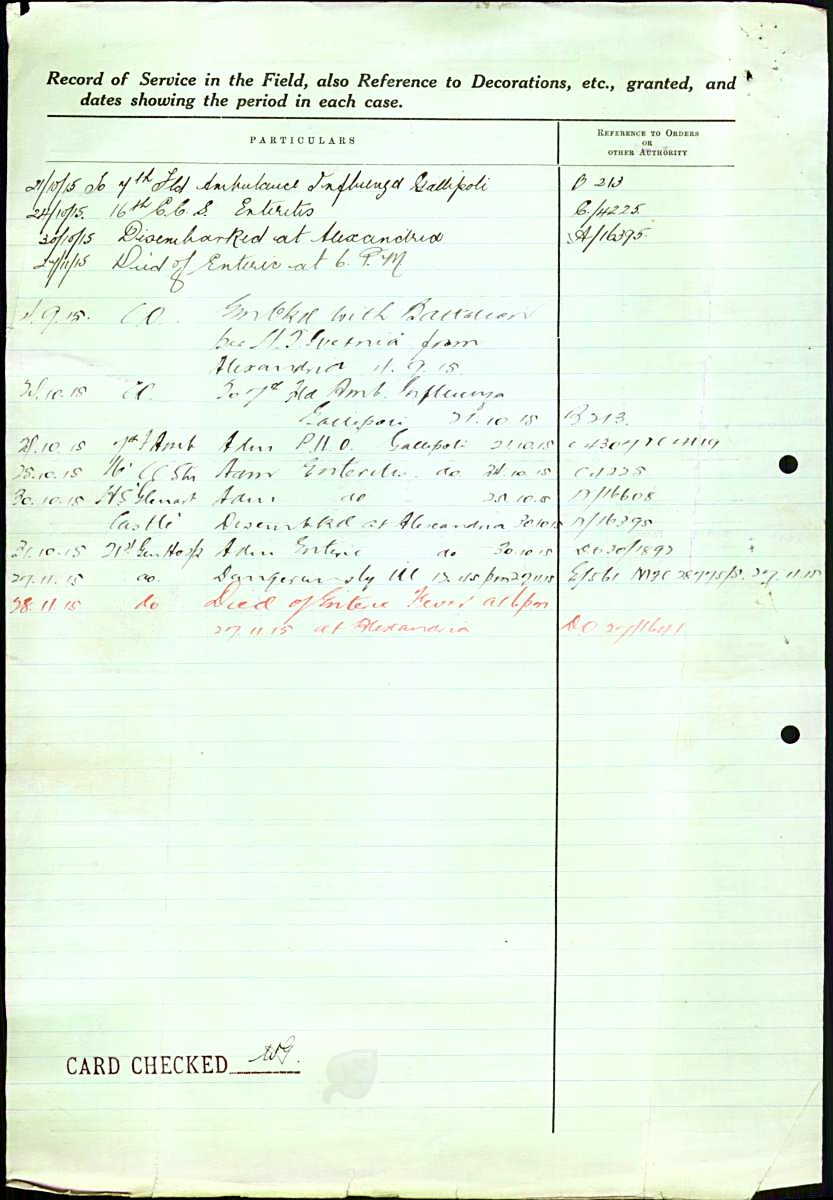 Record of Service in the Field, also Reference to Decorations, etc., granted, and
dates showing the period in each case.
PARTICULARS
REFERENCE TO ORDERS
OR
OTHER AUTHORITY
21/10/15 To 7th Fld Ambulance Influenza Gallipoli B 213
24/10/15. 16th C.C.S. Enteritis C/4225
30/10/15 Disembarked at Alexandria A/16395
27/11/15 Died of Enteric at 6 P.M
4.9.15. C.O. Embkd with Battalion
from
Alexandria 4.9.15.
10.15 CO To 7th Fld Amb. Influenza
Gallipoli 21.10.15 B213.
10.15 7th F Amb Adm Gallipoli 21.10.15
25.10.15 16 CC Stn Adm Enteritis do 24.10.15 C4225
30.10.15 HS Glenart Adm do A/16608
Castle Disembkd at Alexandria 30.10.15 A/16395
31.10.15 21st Gen Hosp Adm Enteric do 30.10.15 DO30/1892
27.11.15 do Dangerously ill 27.11.15
28.11.15 do Died of Enteric Fever at 6pm
27.11.15 at Alexandria
CARD CHECKED